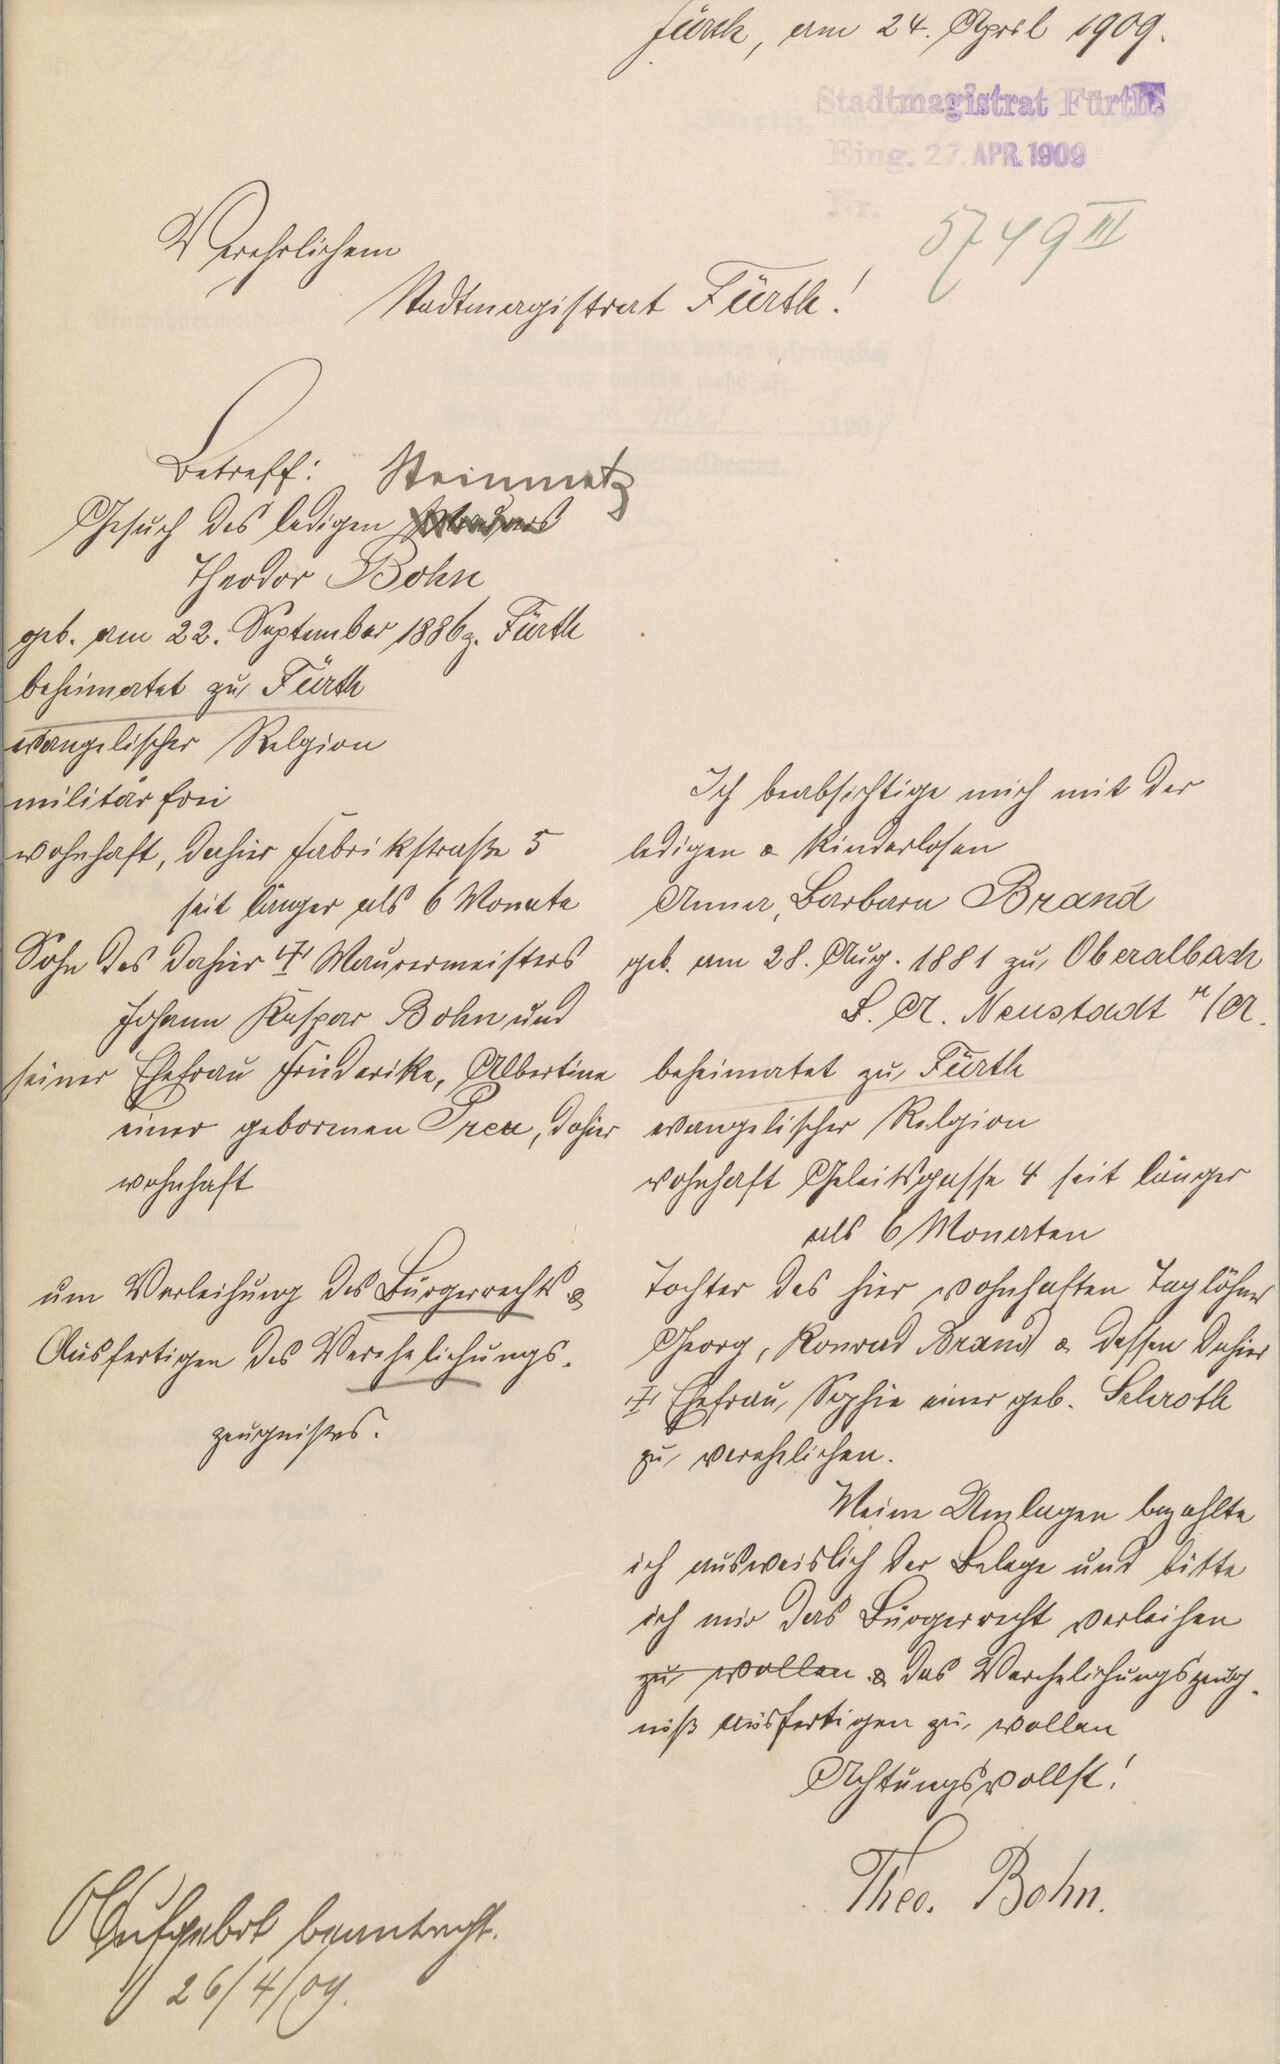 Fürth, am 24. April 1909.
Stadtmagistrat Fürth
Eing. 27. APR. 1909
Nr.
5749 III
Verehrlichem
Stadtmagistrat Fürth!
Betreff: Steinmetz
Gesuch des ledigen
Theodor Bohn
geb. am 22. September 1886 z. Fürth
beheimatet zu Fürth
evangelischer Relgion
militär frei
wohnhaft, dahier Fabrikstraße 5
seit länger als 6 Monate
Sohn des dahier Maurermeisters
Johann Kaspar Bohn und
seiner Ehefrau Friederike, Albertine
einer gebornen, dahier
wohnhaft
um Verleihung des Bürgerrechts &
Ausfertigen des Verehelichungs-
zeugnisses.
Ich beabsichtige mich mit der
ledigen & kinderlosen
Anna, Barbara Brand
geb. am 28. Aug. 1881 zu Oberalbach
B. A. Neustadt a/A.
beheimatet zu Fürth
evangelischer Relgion
wohnhaft Geleitsgasse 4 seit länger
als 6 Monaten
Tochter des hier wohnhaften Taglöhner
Georg, Konrad Brand & dessen dahier
Ehefrau, Sophie einer geb. Schroth
zu verehelichen.
Meine Umlagen bezahlte
ich ausweislich der Belege und bitte
ich mir das Bürgerrecht verleihen
zu wollen & das Verehelichungszeug-
niß ausfertigen zu wollen
Achtungsvollst!
Theo. Bohn.
Aufgebot beantragt.
26/4/09.